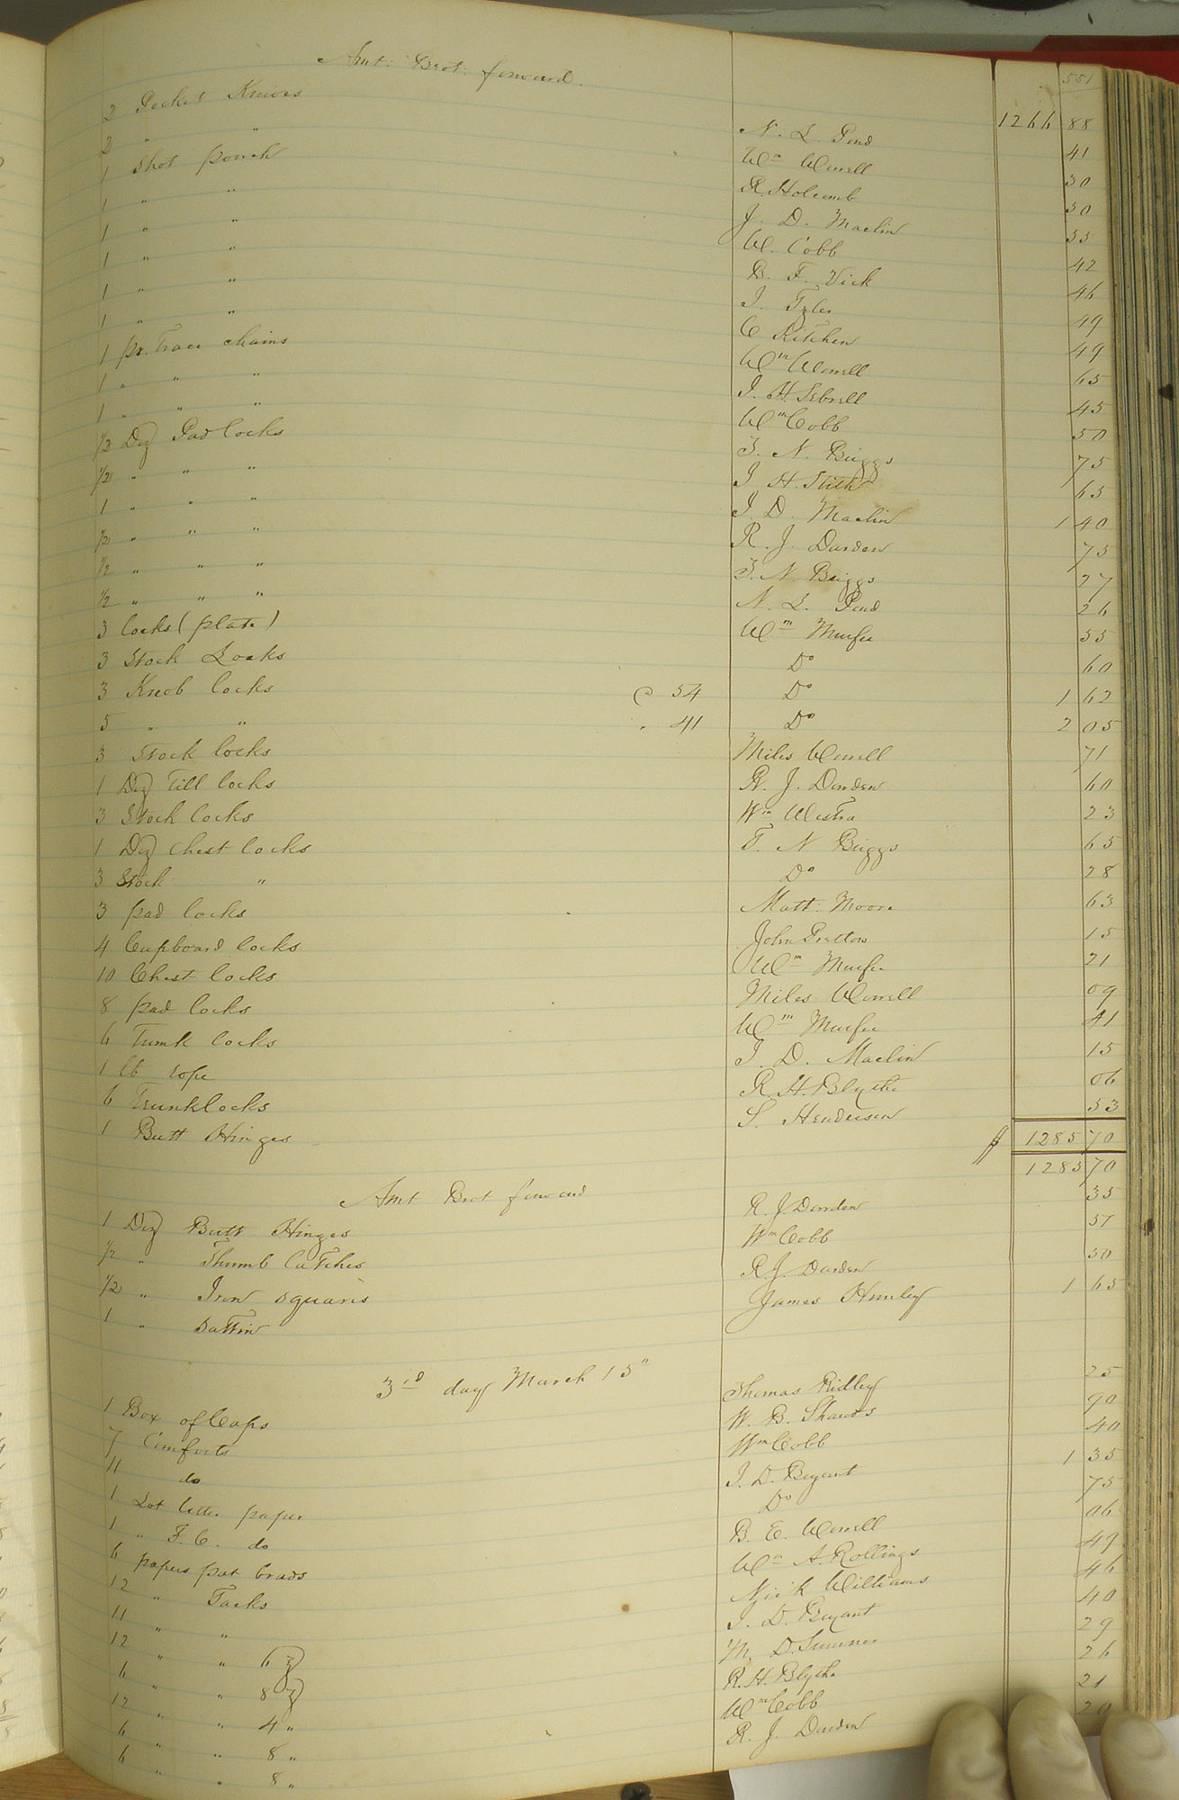 551
Amt. Brot. forward 1266 88
2 Pocket Knives N. L. Pend 41
2 " " Wm Worrell 30
1 Shot pouch R. Holcomb 30
1 " " J. D. Maclin 55
1 " " W. Cobb 42
1 " " B. F. Vick 46
1 " " J. Tyler 49
1 " " C Kitchen 49
1 pr. Trace chains Wm Worrell 65
1 " " " J. H. Sebrell 45
1 " " " Wm Cobb 50
1/2 Dz Pad locks T. N. Briggs 75
1/2 " " " J H. Stith 65
1 " " " J. D. Maclin 1 40
1/2 " " " R. J. Darden 75
1/2 " " " T. N. Briggs 27
1/2 " " " N. L. Pend 26
3 locks (plate) Wm Murfee 55
3 Stock Locks Do 60
3 Knob locks @ 54 Do 1 62
5 " " " 41 Do 2 05
3 Stock locks Miles Worrell 71
1 Dz Till locks R. J. Darden 60
3 Stock locks Wm Westra 23
1 Dz Chest locks T. N Briggs 65
3 Stock " Do 28
3 pad locks Matt. Moore 63
4 Cupboard locks John Pretlow 15
10 Chest locks Wm Murfee 21
8 pad locks Miles Worrell 09
6 Trunk locks Wm Murfee 41
1 lb rope J. D. Maclin 15
6 Trunklocks R. H. Blythe 06
1 Butt Hinges S. Henderson 53
$ 1285 70
Amt Brot forward 1285 70
1 Dz Butt Hinges R. J. Darden 35
1/2 " Thumb latches Wm Cobb 57
1/2 " Iron squares R. J. Darden 50
1 " Sattin James Hunley 1 65
3rd day March 15"
1 Box of Caps Thomas Ridley 25
7 Comforts W. B. Shands 90
11 do Wm Cobb 40
1 Lot letter paper J. D. Bryant 1 35
1 " F. C. do Do 75
6 papers pat brads B. E. Worrell 06
12 " Tacks Wm A. Rollings 49
11 " " Nick Williams 46
12 " " 6 z J. D. Bryant 40
6 " " 8 z M. D. Sumner 29
12 " " 4 " R. H. Blythe 26
6 " " 8 " Wm Cobb 21
6 " " 8 " R. J. Darden 20